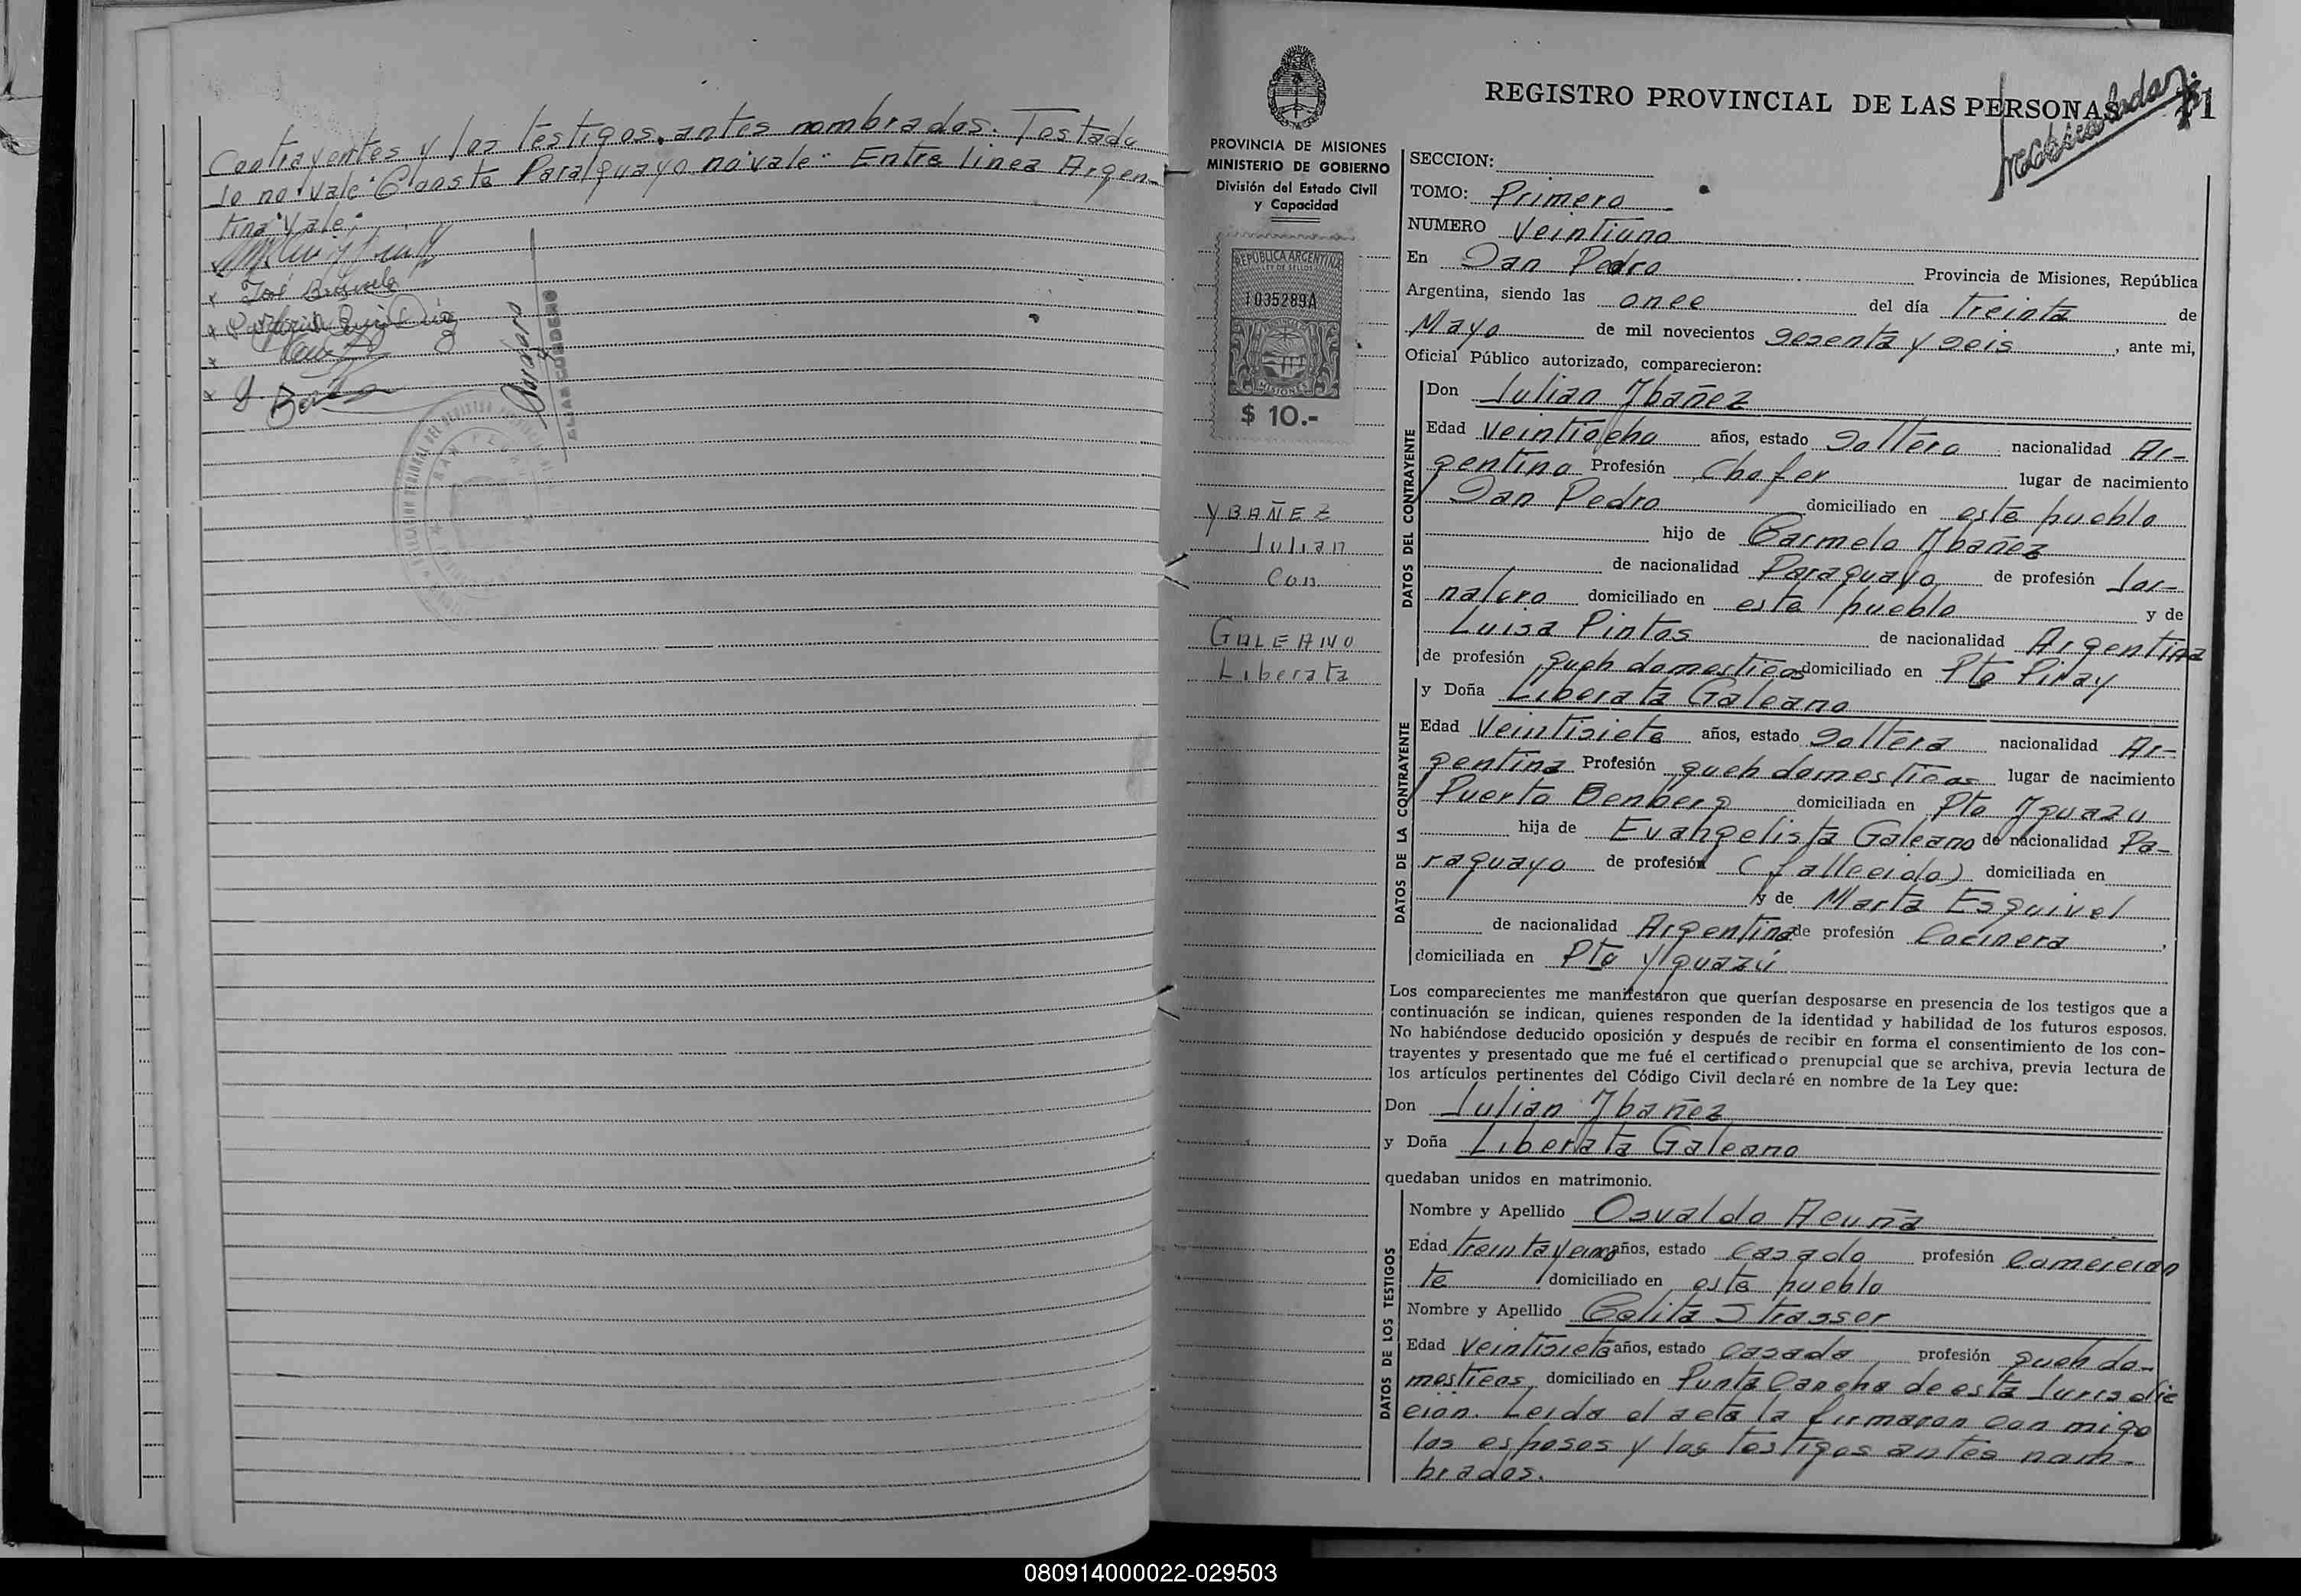 Contrayentes y los testigos, antes nombrados. Testado
lo no vale. Consta Paraguayo no vale. Entre linea Argen-
tina "Vale".
José
ELIAS CORDERO
REGISTRO PROVINCIAL DE LAS PERSONAS
21
PROVINCIA DE MISIONES
MINISTERIO DE GOBIERNO
División del Estado Civil
y Capacidad
REPUBLICA ARGENTINA
LEY DE SELLOS
1035289A
MISIONES
$ 10.-
YBAÑEZ
Julian
Con
GALEANO
Liberata
SECCION:
TOMO: Primero
NUMERO Veintiuno
En San Pedro Provincia de Misiones, República
Argentina, siendo las once del día treinta de
Mayo de mil novecientos sesenta y seis, ante mi,
Oficial Público autorizado, comparecieron:
DATOS DEL CONTRAYENTE
Don Julian Ybañez
Edad Veintiocho años, estado soltero nacionalidad Ar-
gentino Profesión Chofer lugar de nacimiento
San Pedro domiciliado en este pueblo
hijo de Carmelo Ybañez
de nacionalidad Paraguayo de profesión Jor-
nalero domiciliado en este pueblo y de
Luisa Pintos de nacionalidad Argentina
de profesión queh domesticos domiciliado en Pto Piray
DATOS DE LA CONTRAYENTE
y Doña Liberata Galeano
Edad Veintisiete años, estado soltera nacionalidad Ar-
gentina Profesión queh domesticos lugar de nacimiento
Puerto Benberg domiciliada en Pto Yguazu
hija de Evangelista Galeano de nacionalidad Pa-
raguayo de profesión (fallecido) domiciliada en
y de Marta Esquivel
de nacionalidad Argentina de profesión Cocinera,
domiciliada en Pto Yguazú
Los comparecientes me manifestaron que querían desposarse en presencia de los testigos que a
continuación se indican, quienes responden de la identidad y habilidad de los futuros esposos.
No habiéndose deducido oposición y después de recibir en forma el consentimiento de los con-
trayentes y presentado que me fué el certificado prenupcial que se archiva, previa lectura de
los artículos pertinentes del Código Civil declaré en nombre de la Ley que:
Don Julian Ybañez
y Doña Liberata Galeano
quedaban unidos en matrimonio.
DATOS DE LOS TESTIGOS
Nombre y Apellido Osvaldo Acuña
Edad treinta y uno años, estado Casado profesión Comercian
te domiciliado en este pueblo
Nombre y Apellido Celita Strasser
Edad Veintisiete años, estado casada profesión queh do-
mesticos domiciliado en Punta Cancha de esta Jurisdic
cion. Leida el acta la firmaron con migo
los esposos y los testigos antes nom-
brados.
080914000022-029503